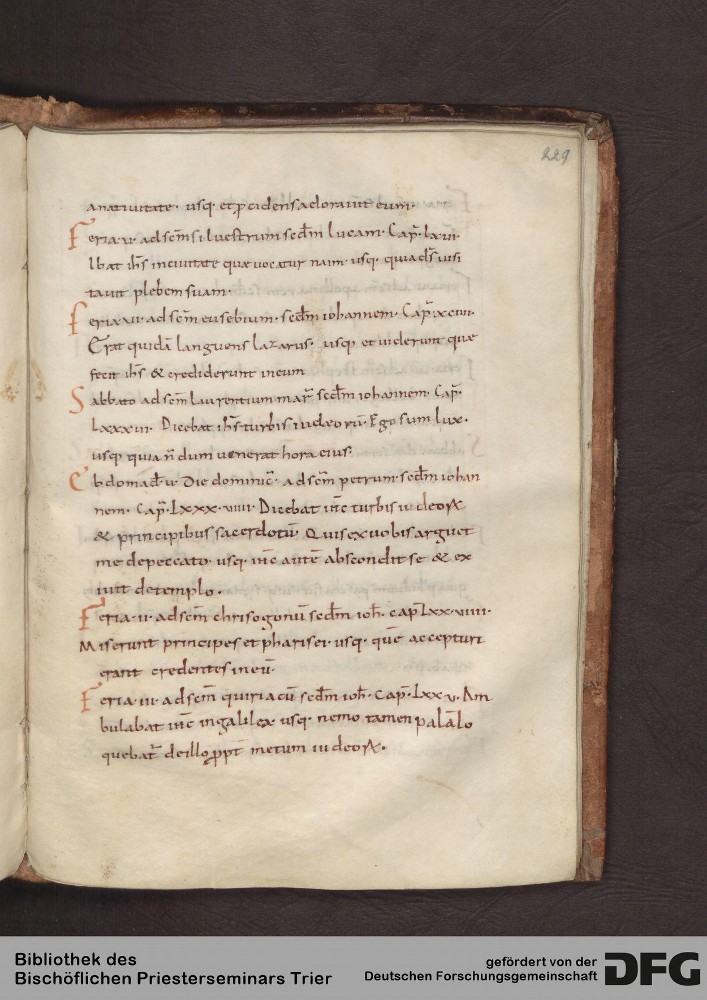 229
anatiuitate· usq· et p̱cidens adorauit eum·
Feria·u· ad sc̄m siluestrum secd̄m lucam· Cap̄·lxuii·
Ibat ih̄s inciuitate quae uocatur naim· usq· quia d̄s uisi
tauit plebem suam·
Feria·ui· ad sc̄m eusebium· secd̄m iohannem· Cap̄·xciiii·
Erat quidā languens lazarus· usq· et uiderunt quae
fecit ih̄s & crediderunt in eum
Sabbato ad sc̄m laurentium mar̄ secd̄m iohannem· Cap̄·
lxxxuii· Dicebat ih̄s turbis iudeorū· Ego sum lux·
usq· quia n̄ dum uenerat hora eius·
Ebdomad̄·u· Die dominic̄· ad sc̄m petrum· secd̄m iohan
nem· Cap̄·Lxxx·uiiii· Dicebat ih̄c turbis iudeoꝝ
& principibus sacerdotū· Quis ex uobis arguet
me de peccato· usq· ih̄c autē abscondit se & ex
iuit de templo·
Feria·ii· ad sc̄m chrisogonū secd̄m ioh̄· cap̄ Lxx·uiiii·
Miserunt principes et pharisei· usq· quē accepturi
erant credentes in eū·
Feria·iii· ad sc̄m quiriacū secd̄m ioh̄· Cap̄·Lxx·u· Am
bulabat ih̄c in galilea· usq· nemo tamen palā lo
quebat̄ de illo p̱pt̄ metum iudeoꝝ·
Bibliothek des
Bischöflichen Priesterseminars Trier
gefördert von der
Deutschen Forschungsgemeinschaft
DFG